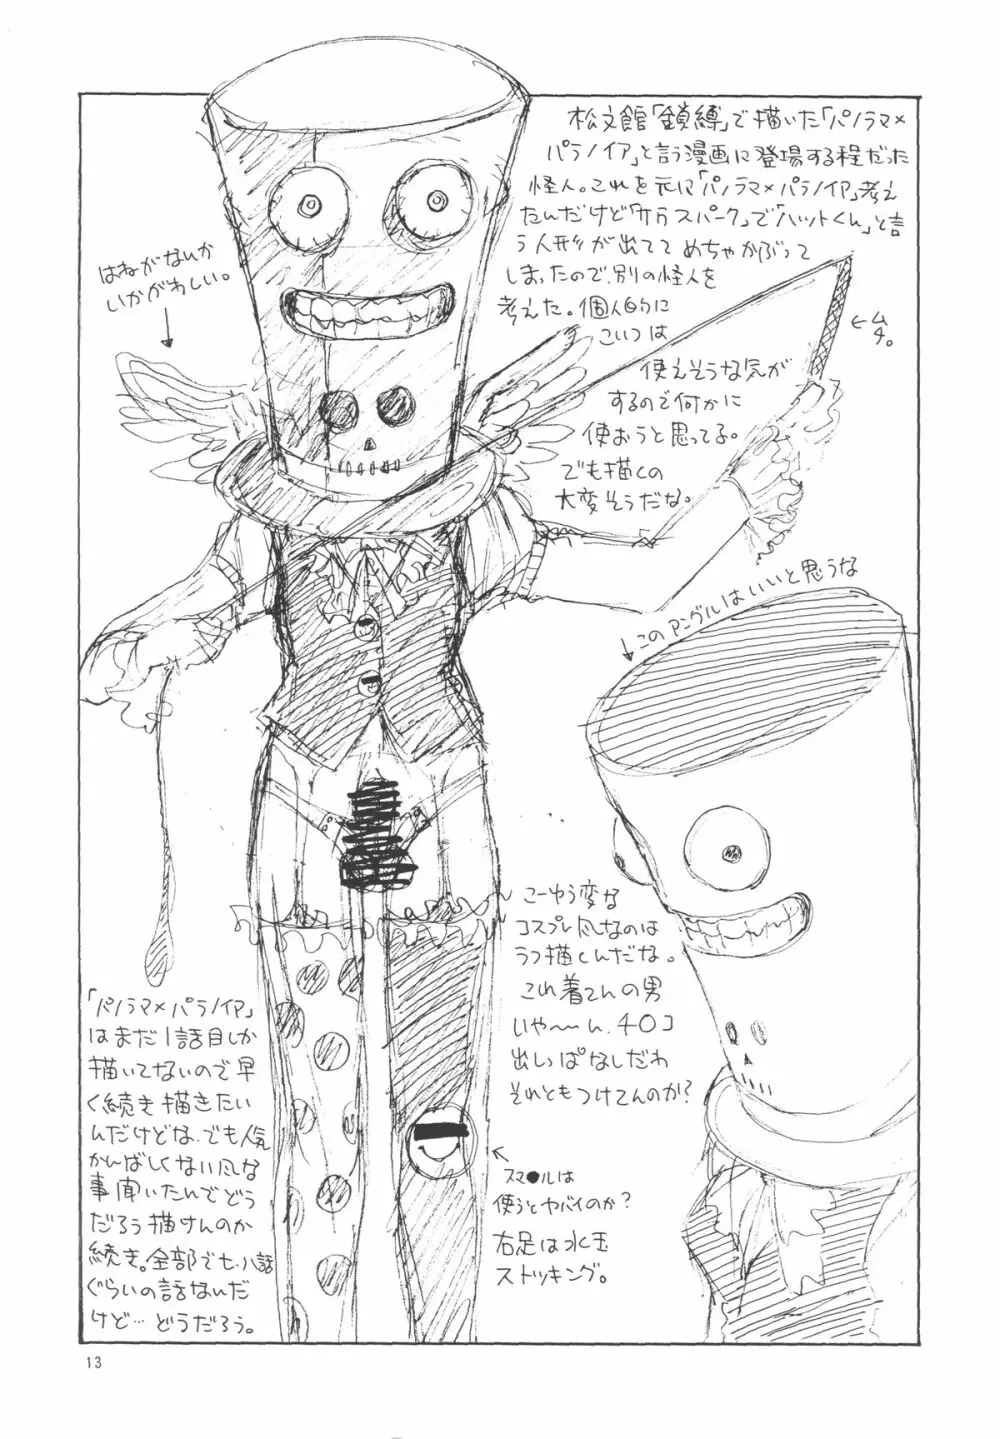 松文館「鎖縛」で描いた「パノラマ×
パラノイア」と言う漫画に登場する程だった
怪人。これを元に「パノラマ×パラノイア」考え
たんだけど「サウスパーク」で「ハットくん」と言
う人形が出てて めちゃかぶって
しまったので、別の怪人を
考えた。個人的に
こいつは
使えそうな気が
するので何かに
使おうと思ってる。
でも描くの
大変そうだな。
はねがなんか
いかがわしい。
←ムチ。
このアングルはいいと思うな
こーゆう変な
コスプレ風なのは
ラフ描くんだな。
これ着てんの男
いや〜ん、チ○コ
出しっぱなしだわ
それともつけてんのか?
スマ●ルは
使うとヤバイのか?
右足は水玉
ストッキング。
「パノラマ×パラノイア」
はまだ1話目しか
描いてないので早
く続き描きたい
んだけどな、でも人気
かんばしくない風な
事聞いたんでどう
だろう描けんのか
続き。全部でも八話
ぐらいの話なんだ
けど…どうだろう。
13